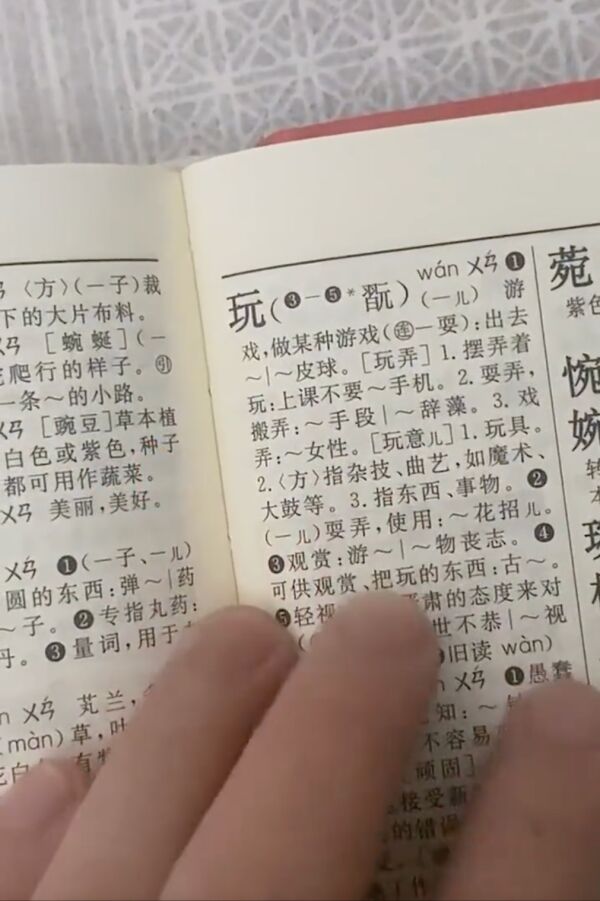 ㄢˊ 〈方〉(一子)裁
下的大片布料。
ㄨㄢ [蜿蜒](一
爬行的样子。㊁
一条~的小路。
ㄨㄢ [豌豆]草本植
白色或紫色,种子
都可用作蔬菜。
ㄨㄢ 美丽,美好。
ㄨㄢˊ ❶(一子、一儿)
圆的东西:弹~|药
~子。❷专指丸药:
丹。❸量词,用于
ㄨㄢˊ 芄兰,
(màn)草,叶
花白
玩(❸-❺*翫) wán ㄨㄢˊ ❶
(一儿) 游
戏,做某种游戏(㊣一耍):出去
~|~皮球。[玩弄]1.摆弄着
玩:上课不要~手机。2.耍弄,
搬弄:~手段|~辞藻。3.戏
弄:~女性。[玩意儿]1.玩具。
2.〈方〉指杂技、曲艺,如魔术、
大鼓等。3.指东西、事物。❷
(一儿)耍弄,使用:~花招儿。
❸观赏:游~|~物丧志。❹
可供观赏、把玩的东西:古~。
❺轻视 严肃的态度来对
世不恭|~视
旧读 wàn)
ㄨㄢˊ ❶愚蠢
知:~
不容易
[顽固]
接受新
的错误
菀
紫色
惋
婉